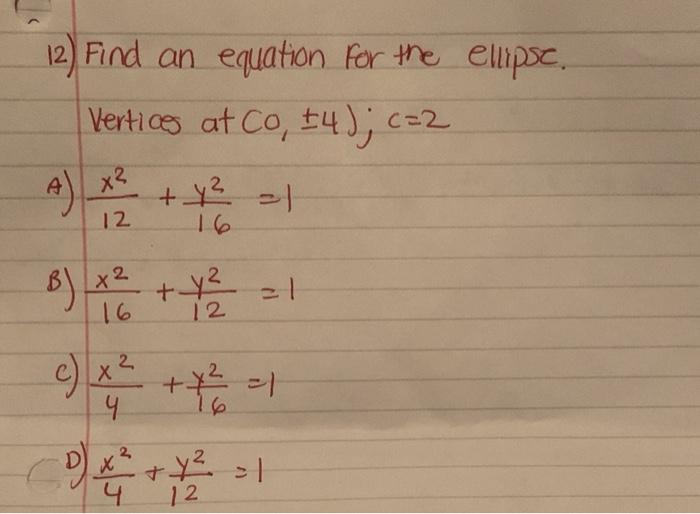 12) Find an equation for the ellipse.
Vertices at (0, ±4); c=2
A) x²/12 + y²/16 = 1
B) x²/16 + y²/12 = 1
C) x²/4 + y²/16 = 1
D) x²/4 + y²/12 = 1